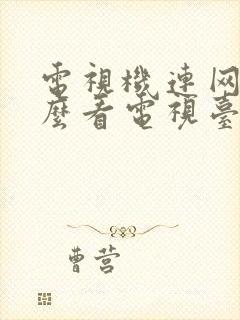 電視機連网
麼看電視臺
曹营